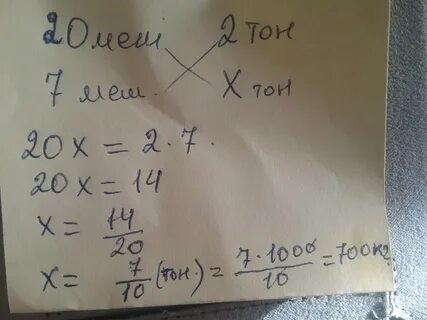 20 меш 2 тон
7 меш. X тон
20x = 2 · 7.
20x = 14
x = 14/20
x = 7/10 (тон) = 7·1000/10 = 700 кг